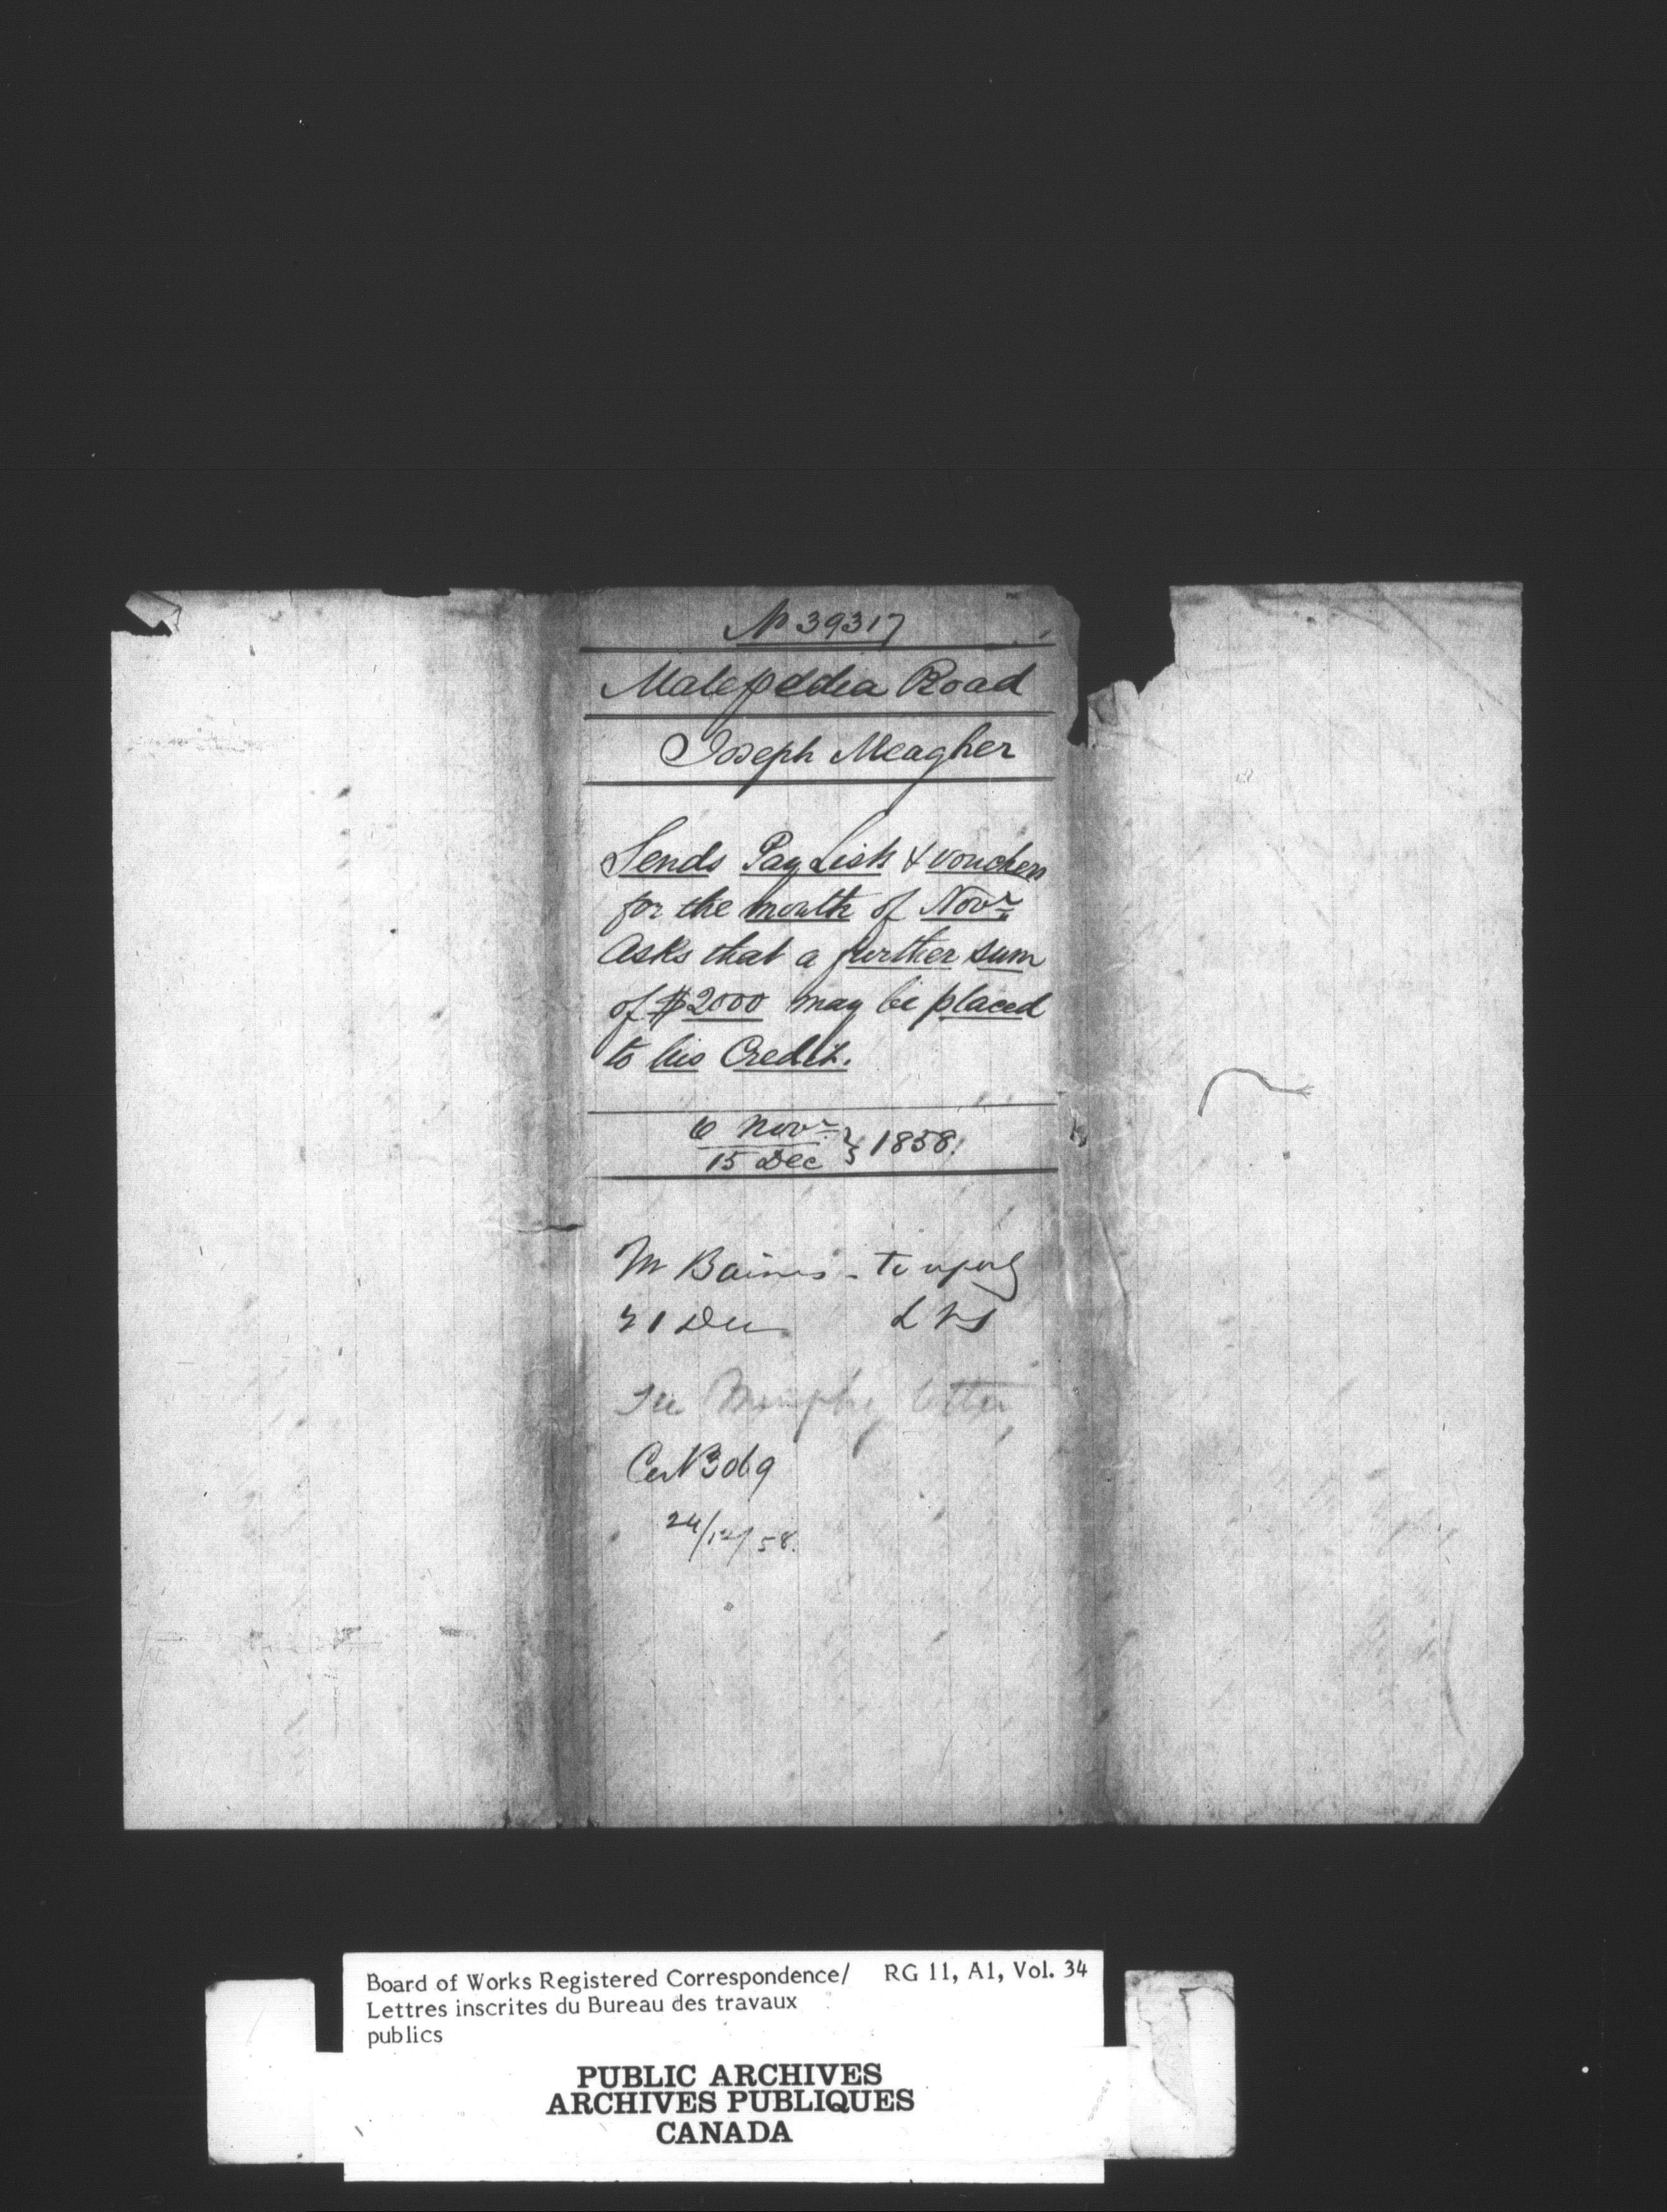 No 39317
Matepedia Road
Joseph Meagher
Sends Pay List & vouchers
for the month of Novr.
Asks that a further sum
of $2000 may be placed
to his Credit.
6 Novr.
15 Dec } 1858.
Mr Baines - to report
21 Dec
See Murphy letter
Cer N 3069
24/12/58.
Board of Works Registered Correspondence/ RG 11, A1, Vol. 34
Lettres inscrites du Bureau des travaux
publics
PUBLIC ARCHIVES
ARCHIVES PUBLIQUES
CANADA